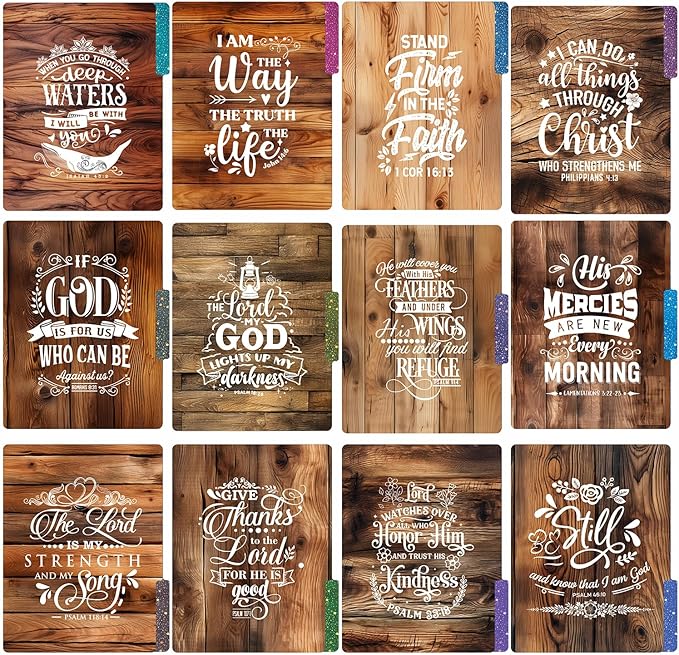 WHEN YOU GO THROUGH
deep
WATERS
I WILL BE WITH
you
ISAIAH 43:2
I AM
THE
Way
THE TRUTH
THE
life
John 14:6
STAND
Firm
IN THE
Faith
1 COR 16:13
I CAN DO
all things
THROUGH
Christ
WHO STRENGTHENS ME
PHILIPPIANS 4:13
IF
GOD
IS FOR US
WHO CAN BE
Against us?
ROMANS 8:31
THE Lord
MY
GOD
LIGHTS UP MY
darkness
PSALM 18:28
He will cover you
With His
FEATHERS
AND UNDER
His WINGS
you will find
REFUGE
PSALM 91:4
His
MERCIES
ARE NEW
Every
MORNING
LAMENTATIONS 3:22-23
The Lord
IS MY
STRENGTH
AND MY Song
PSALM 118:14
GIVE
Thanks
to the
Lord
FOR HE IS
good
Lord
WATCHES OVER
ALL WHO
Honor Him
AND TRUST HIS
Kindness
PSALM 33:18
Be
Still
and know that I am God
PSALM 46:10